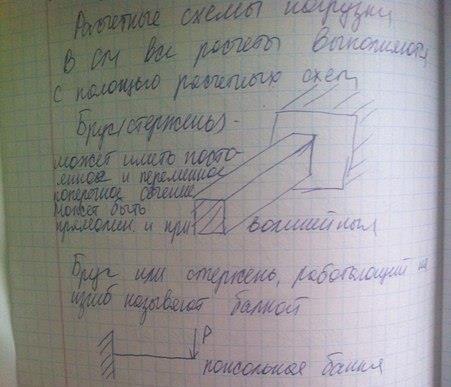 Расчетные схемы погрузки
В СМ все расчеты выполняются
с помощью расчетных схем
Брус(стержень) -
может иметь посто-
янное и переменное
поперечное сечение
Может быть
прямолин. и при
Брус или стержень, работающий на
изгиб называют балкой
Р
консольная балка